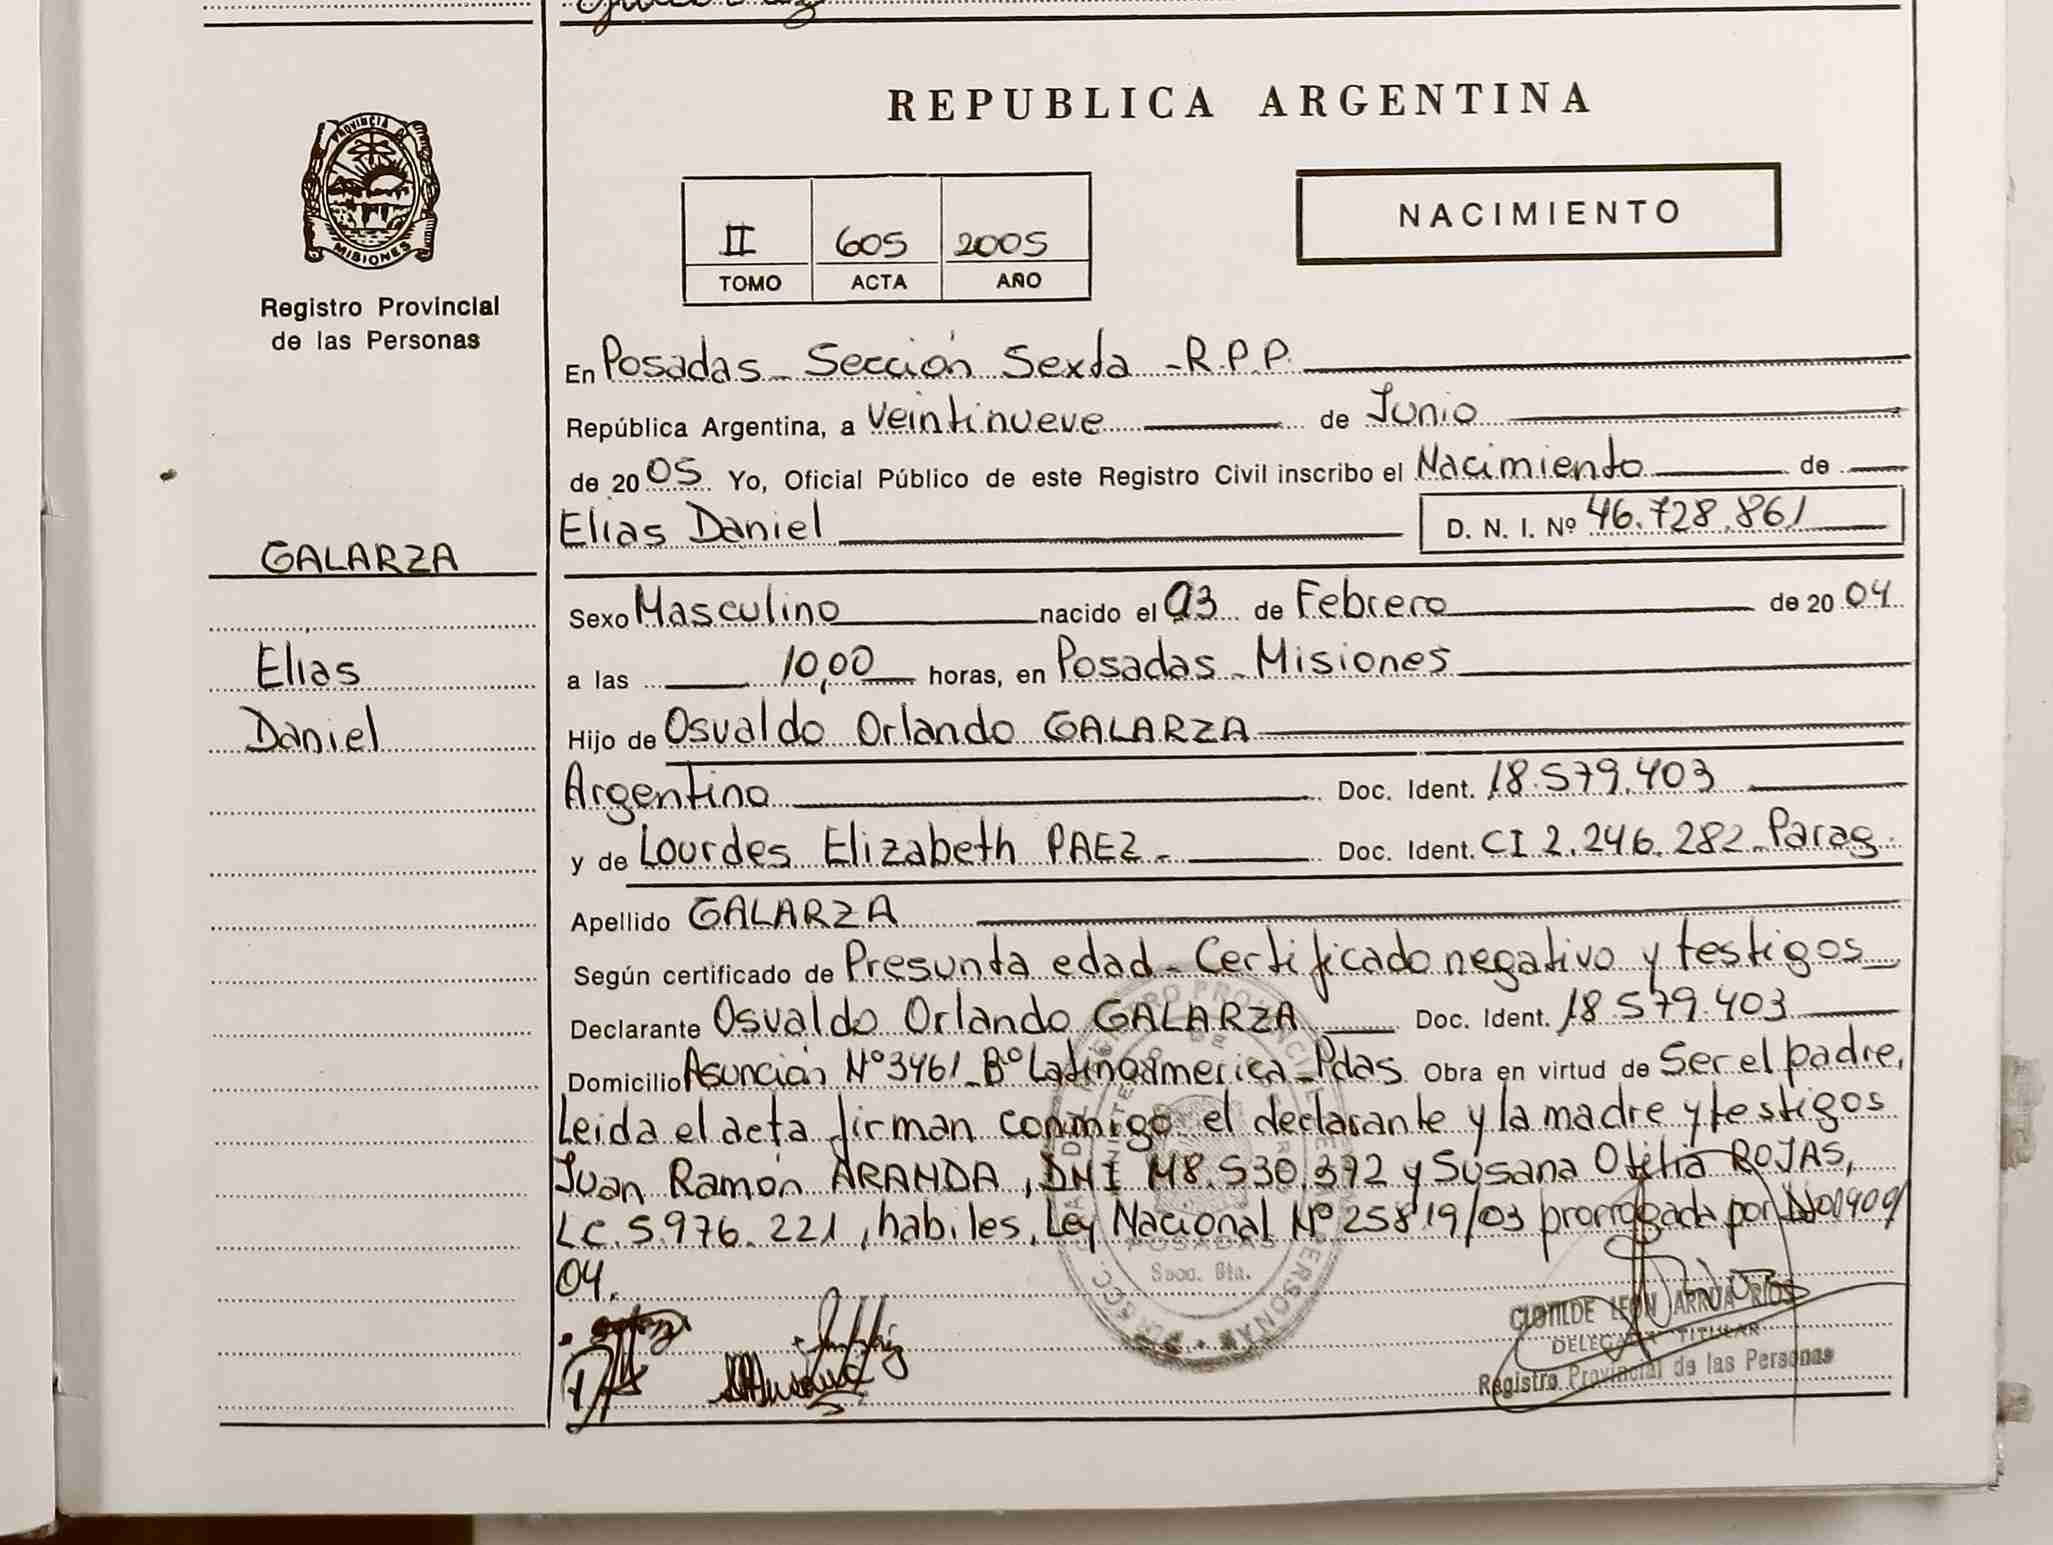 PROVINCIA DE
MISIONES
Registro Provincial
de las Personas
GALARZA
Elias
Daniel
REPUBLICA ARGENTINA
II 605 2005
TOMO ACTA AÑO
NACIMIENTO
En Posadas - Sección Sexta - R.P.P.
República Argentina, a veintinueve de Junio
de 2005 Yo, Oficial Público de este Registro Civil inscribo el Nacimiento de
Elias Daniel D. N. I. Nº 46.728.861
Sexo Masculino nacido el 03 de Febrero de 2004
a las 10,00 horas, en Posadas - Misiones
Hijo de Osvaldo Orlando GALARZA
Argentino Doc. Ident. 18.579.403
y de Lourdes Elizabeth PAEZ - Doc. Ident. CI 2.246.282 - Parag.
Apellido GALARZA
Según certificado de Presunta edad - Certificado negativo y testigos
Declarante Osvaldo Orlando GALARZA Doc. Ident. 18.579.403
Domicilio Asunción Nº 3461 - Bº Latinoamerica - Pdas. Obra en virtud de Ser el padre,
Leida el acta firman conmigo el declarante y la madre y testigos
Juan Ramón ARANDA, DNI M8.530.372 y Susana Otilia ROJAS,
LC. 5.976.221, habiles, Ley Nacional Nº 25819/03 prorrogada por
04.
POSADAS
Secc. 6ta.
CLOTILDE LEON ARRUA RIOS
DELEGADA TITULAR
Registro Provincial de las Personas